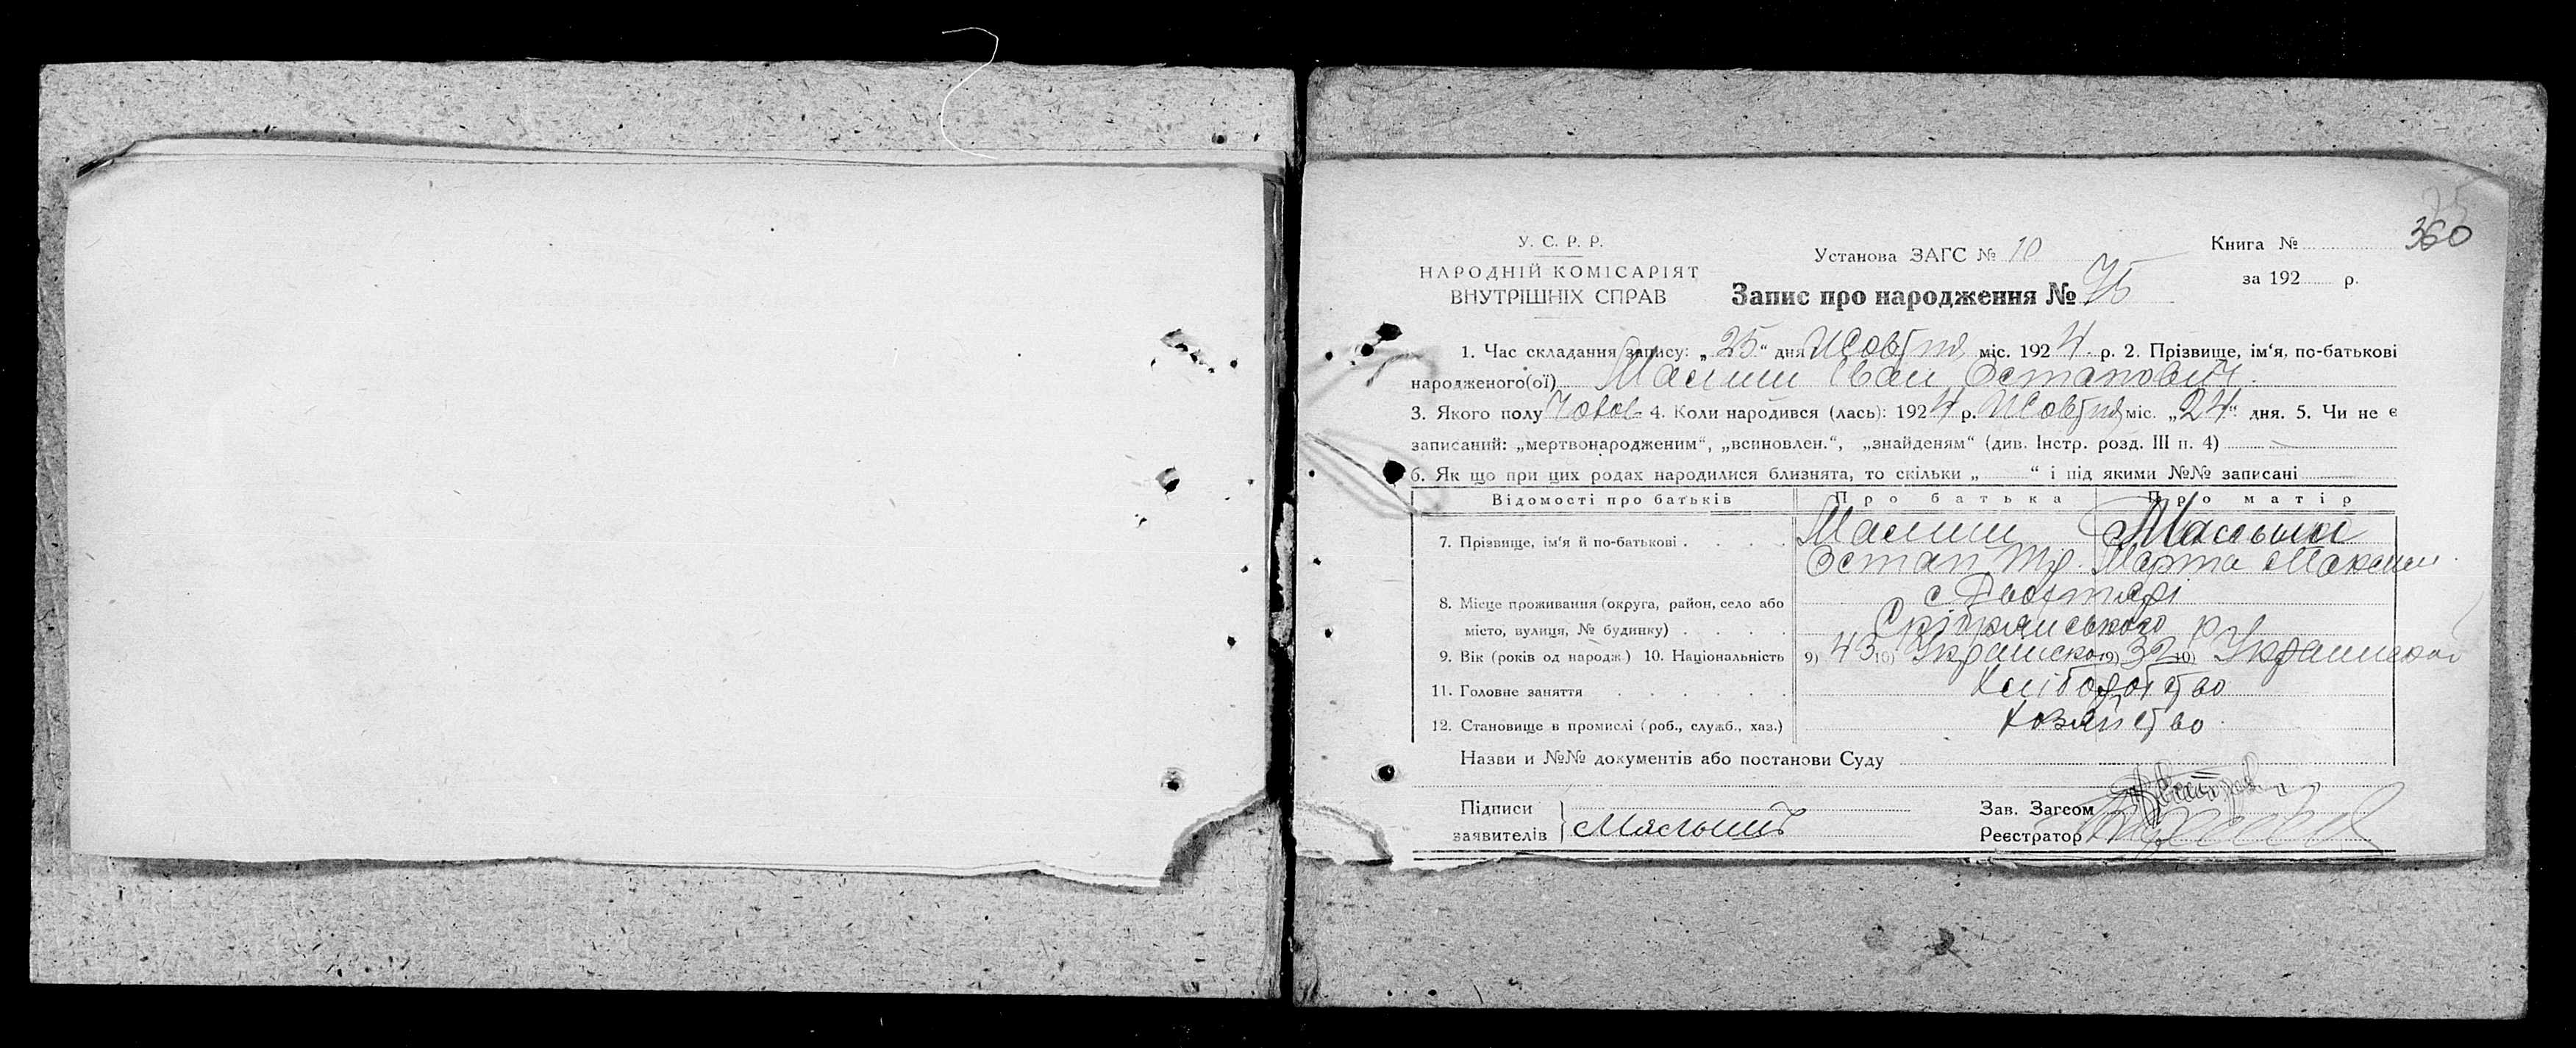 360
У. С. Р. Р.
НАРОДНІЙ КОМІСАРІЯТ
ВНУТРІШНІХ СПРАВ
Установа ЗАГС № 10
Книга №
за 192 р.
Запис про народження № 75
1. Час складання запису: „25“ дня Жовтня міс. 1924 р. 2. Прізвище, ім‘я, по-батькові
народженого(ої) Іван Остапович
3. Якого полу Чолов. 4. Коли народився (лась): 1924 р. Жовтня міс. „24“ дня. 5. Чи не є
записаний: „мертвонародженим“, „всиновлен.“, „знайденям“ (див. Інстр. розд. III п. 4)
6. Як що при цих родах народилися близнята, то скільки „ “ і під якими №№ записані
Відомості про батьків Про батька Про матір
7. Прізвище, ім‘я й по-батькові
Остап Марта Максим.
8. Місце проживання (округа, район, село або
місто, вулиця, № будинку) Срібрянського р
9. Вік (років од народж.) 10. Національність 9) 43 10) Украинской 9) 32 10) Украинской
11. Головне заняття Хліборобство
12. Становище в промислі (роб., служб., хаз.) Хозяйство
Назви и №№ документів або постанови Суду
Підписи
заявителів
Зав. Загсом
Реєстратор